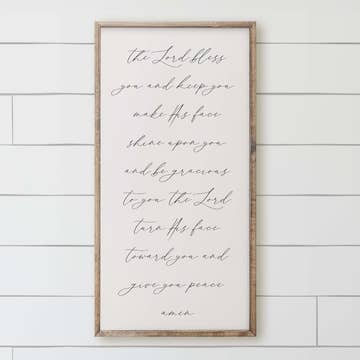 the Lord bless
you and keep you
make His face
shine upon you
and be gracious
to you the Lord
turn His face
toward you and
give you peace
amen